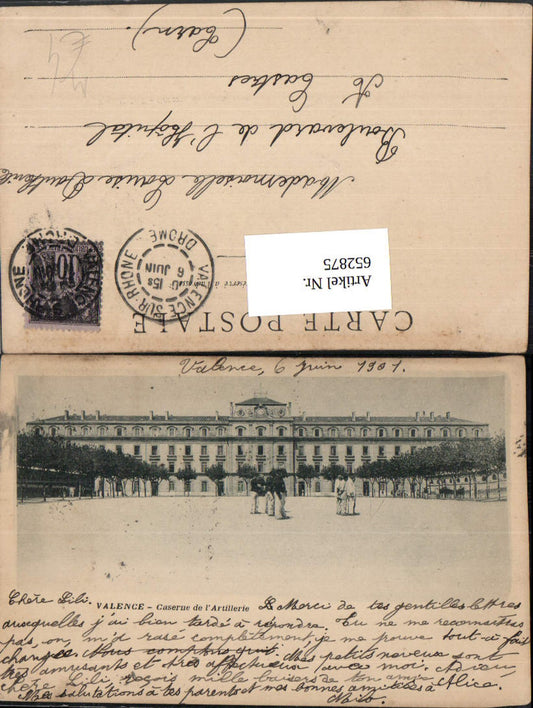 CARTE POSTALE
Artikel Nr.
652875
VALENCE SUR RHONE
15s
6 JUIN
DROME
10
Mademoiselle Louise
Boulevard de l'Hôpital
A Castres
(Tarn).
Valence, 6 juin 1901.
VALENCE - Caserne de l'Artillerie
Chère Lili. Merci de tes gentilles lettres
auxquelles j'ai bien tardé à répondre. Tu ne me reconnaîtras
pas, on m'a rasé complètement, je me trouve tout à fait
changé. Mes petits neveux sont
très amusants et très affectueux avec moi. Adieu
chère Lili, reçois mille baisers de ton amie
Mes salutations à tes parents et nos bonnes amitiés à Alice.